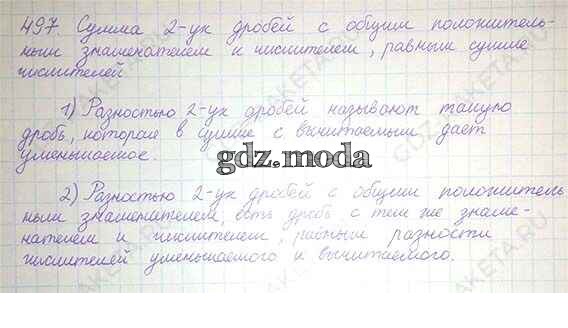 497. Сумма 2-ух дробей с общим положитель-
ным знаменателем и числителем, равным сумме
числителей
1) Разностью 2-ух дробей называют такую
дробь, которая в сумме с вычитаемым дает
уменьшаемое.
gdz.moda
2) Разностью 2-ух дробей с общим положитель
ным знаменателем, есть дробь с тем же знаме-
нателем и числителем, равным разности
числителей уменьшаемого и вычитаемого.